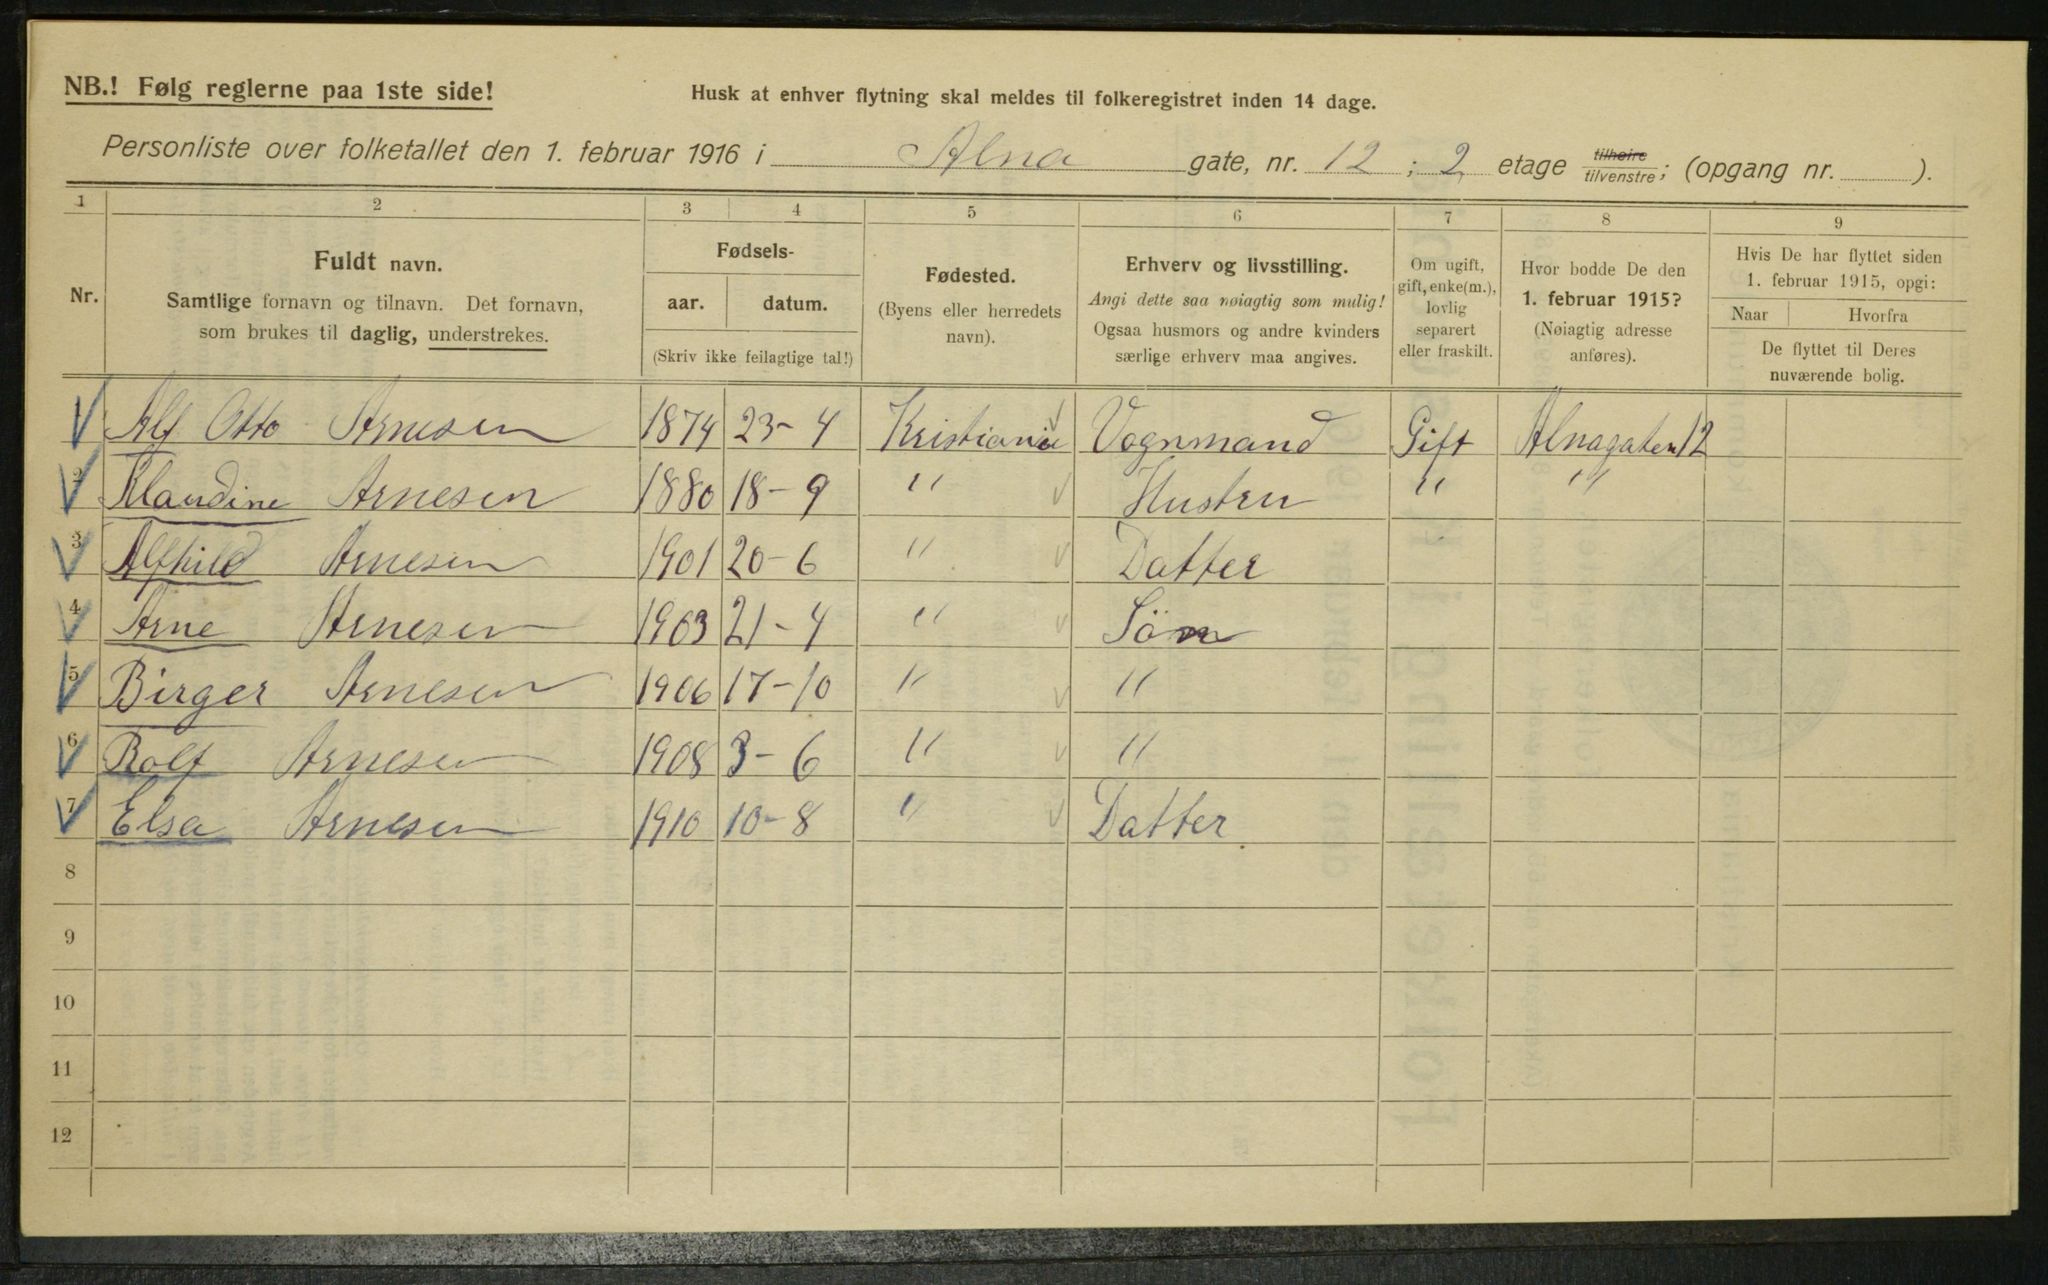 NB.! Følg reglerne paa 1ste side!
Husk at enhver flytning skal meldes til folkeregistret inden 14 dage.
Personliste over folketallet den 1. februar 1916 i Alna gate, nr. 12 ; 2 etage tilhøire tilvenstre; (opgang nr. ).
1 2 3 4 5 6 7 8 9
Nr.
Fuldt navn.
Samtlige fornavn og tilnavn. Det fornavn,
som brukes til daglig, understrekes.
Fødsels-
aar. datum.
(Skriv ikke feilagtige tal!)
Fødested.
(Byens eller herredets
navn).
Erhverv og livsstilling.
Angi dette saa nøiagtig som mulig!
Ogsaa husmors og andre kvinders
særlige erhverv maa angives.
Om ugift,
gift, enke(m.),
lovlig
separert
eller fraskilt.
Hvor bodde De den
1. februar 1915?
(Nøiagtig adresse
anføres).
Hvis De har flyttet siden
1. februar 1915, opgi:
Naar Hvorfra
De flyttet til Deres
nuværende bolig.
Alf Otto Arnesen 1874 23-4 Kristiania Vognmand Gift Alnagaten 12
2 Klaudine Arnesen 1880 18-9 " Hustru " "
3 Alfhild Arnesen 1901 20-6 " Datter
4 Arne Arnesen 1903 21-4 " Sön
5 Birger Arnesen 1906 17-10 " "
6 Rolf Arnesen 1908 3-6 " "
7 Elsa Arnesen 1910 10-8 " Datter
8
9
10
11
12